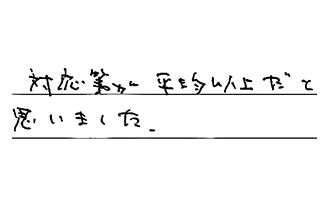 対応等が平均以上だと
思いました.